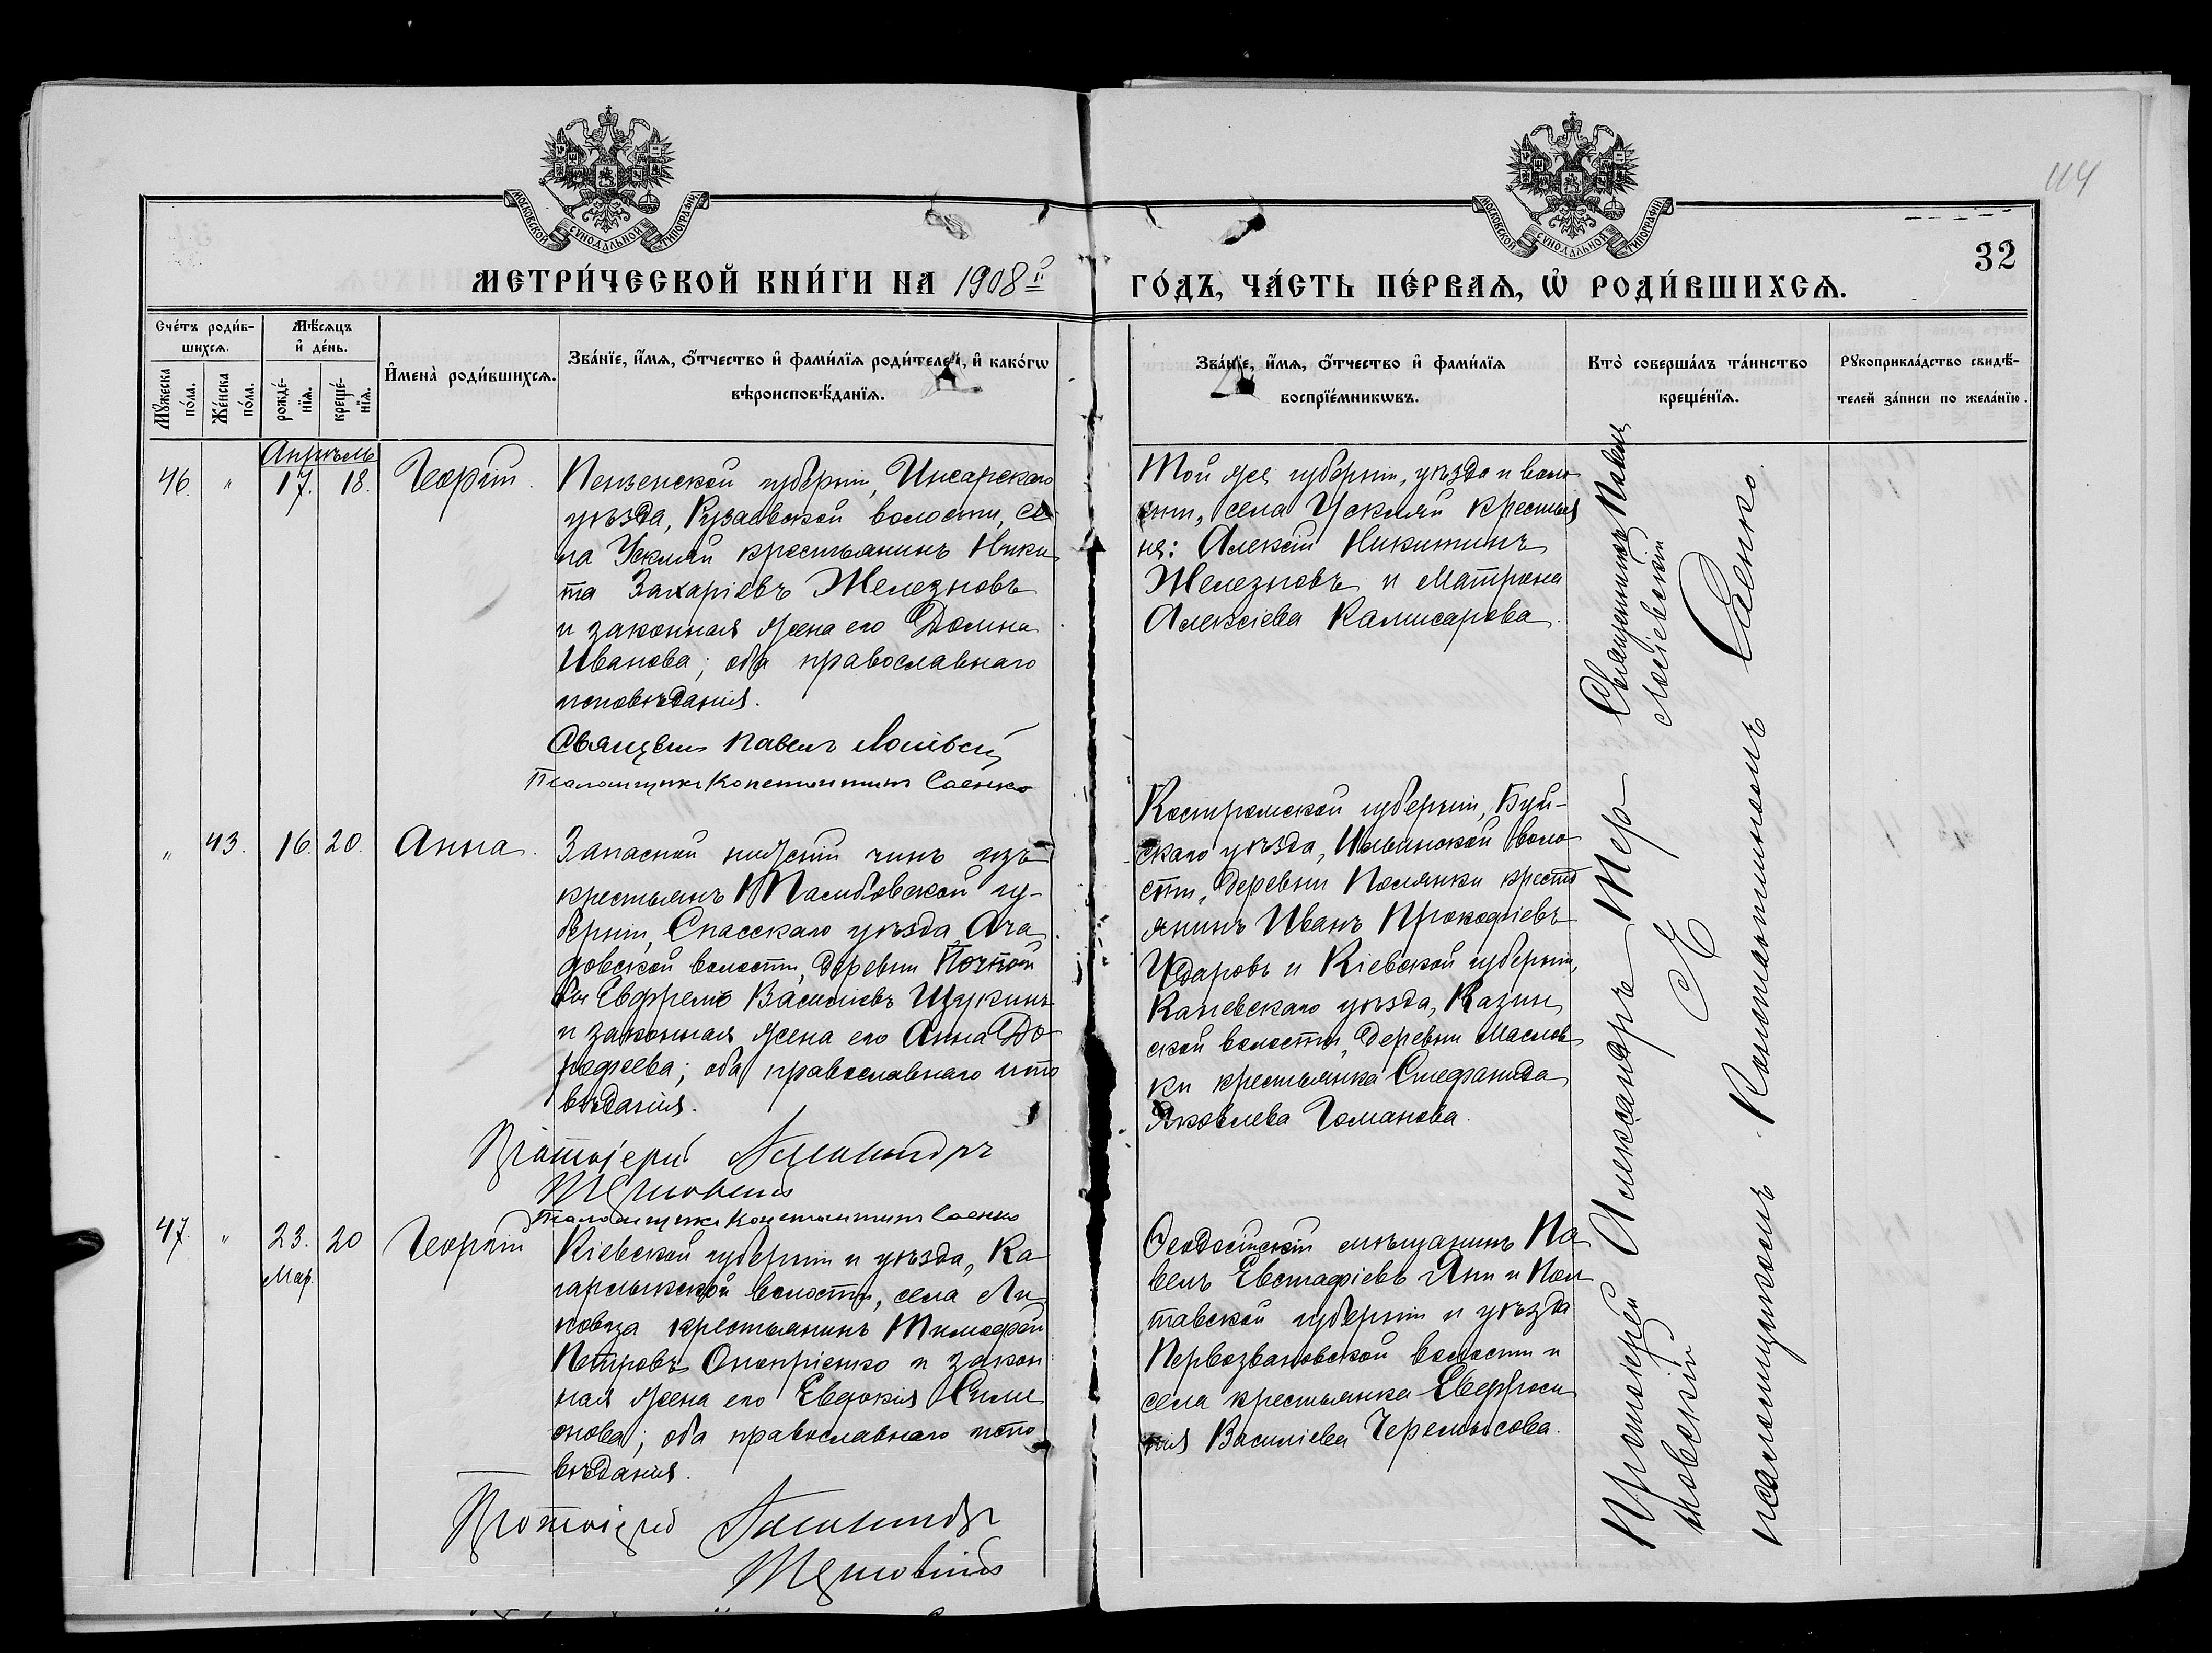 114
32
МОСКОВСКОЙ СѴНОДАЛЬНОЙ ТИПОГРАФІИ
МОСКОВСКОЙ СѴНОДАЛЬНОЙ ТИПОГРАФІИ
МЕТРИ́ЧЕСКОЙ КНИ́ГИ НА 1908й
ГО́ДЪ, ЧА́СТЬ ПЕ́РВАЯ, Ѡ҆ РОДИ́ВШИХСѦ.
Сче́тъ роди́в-
шихсѧ.
Мѣ́сѧцъ
и҆ де́нь.
Мꙋ́жеска по́ла.
Же́нска по́ла.
рожде́-нїѧ.
креще́-нїѧ.
И҆мена̀ роди́вшихсѧ.
Зва́нїе, и҆́мѧ, ѻ҆́тчество и҆ фами́лїѧ роди́телей, и҆ како́гѡ
вѣроисповѣ́данїѧ.
Зва́нїе, и҆́мѧ, ѻ҆́тчество и҆ фами́лїѧ
воспрїе́мникѡвъ.
Кто̀ соверша́лъ та́инство
креще́нїѧ.
Рꙋкоприкла́дство свидѣ́-
телей за́писи по жела́нїю.
Апрѣль
46. " 17. 18. Георгій.
Пензенской губерніи, Инсарскаго
уѣзда, Рузаевской волости, се
ла Ускляй крестьянинъ Ники
та Захаріевъ Железновъ
и законная жена его Домна
Иванова; оба православнаго
исповѣданія.
Священ Павелъ
Псаломщикъ Константинъ Саенко
Той же губерніи, уѣзда и воло
сти, села Ускляй крестья
не: Алексій Никитинъ
Железновъ и Матрона
Алексіева Камисарова.
" 43. 16. 20. Анна.
Запасной нижній чинъ изъ
крестьянъ Тамбовской гу-
берніи, Спасскаго уѣзда, Ача
довской волости, деревни
Евфремъ Василіевъ Щукинъ
и законная жена его Анна До-
рофеева; оба православнаго испо
вѣданія.
Протоіерей Александръ
Псаломщикъ Константинъ Саенко
Костромской губерніи, Буй-
скаго уѣзда, Ильинской воло
сти, деревни Полянки крестъ
янинъ Иванъ Прокофіевъ
Ударовъ и Кіевской губерніи,
Каневскаго уѣзда, Казин
ской волости, деревни Маслов
ки крестьянка Стефанида
Яковлева Гоманова.
47. " 23. 20 Георгій
Мар.
Кіевской губерніи и уѣзда, Ка
гарлыкской волости, села Ли
повца крестьянинъ Тимофей
Петровъ Оноприенко и закон
ная жена его Евдокія Симе
онова; оба православнаго испо
вѣданія.
Протоіерей Александръ
Ѳеодосійскій мѣщанинъ Па
велъ Евстафіевъ Яни и Пол
тавской губерніи и уѣзда
Первозвановской волости и
села крестьянка Евфроси
нія Василіева Черемисова.
Священникъ Павелъ
Протоіерей Александръ Тер
новскій
съ
псаломщикомъ Константиномъ Саенко.